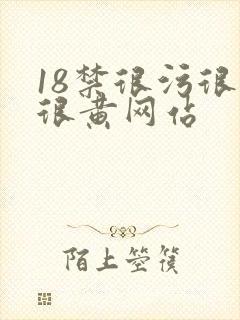 18禁很污很
很黄网佔
陌上箜篌